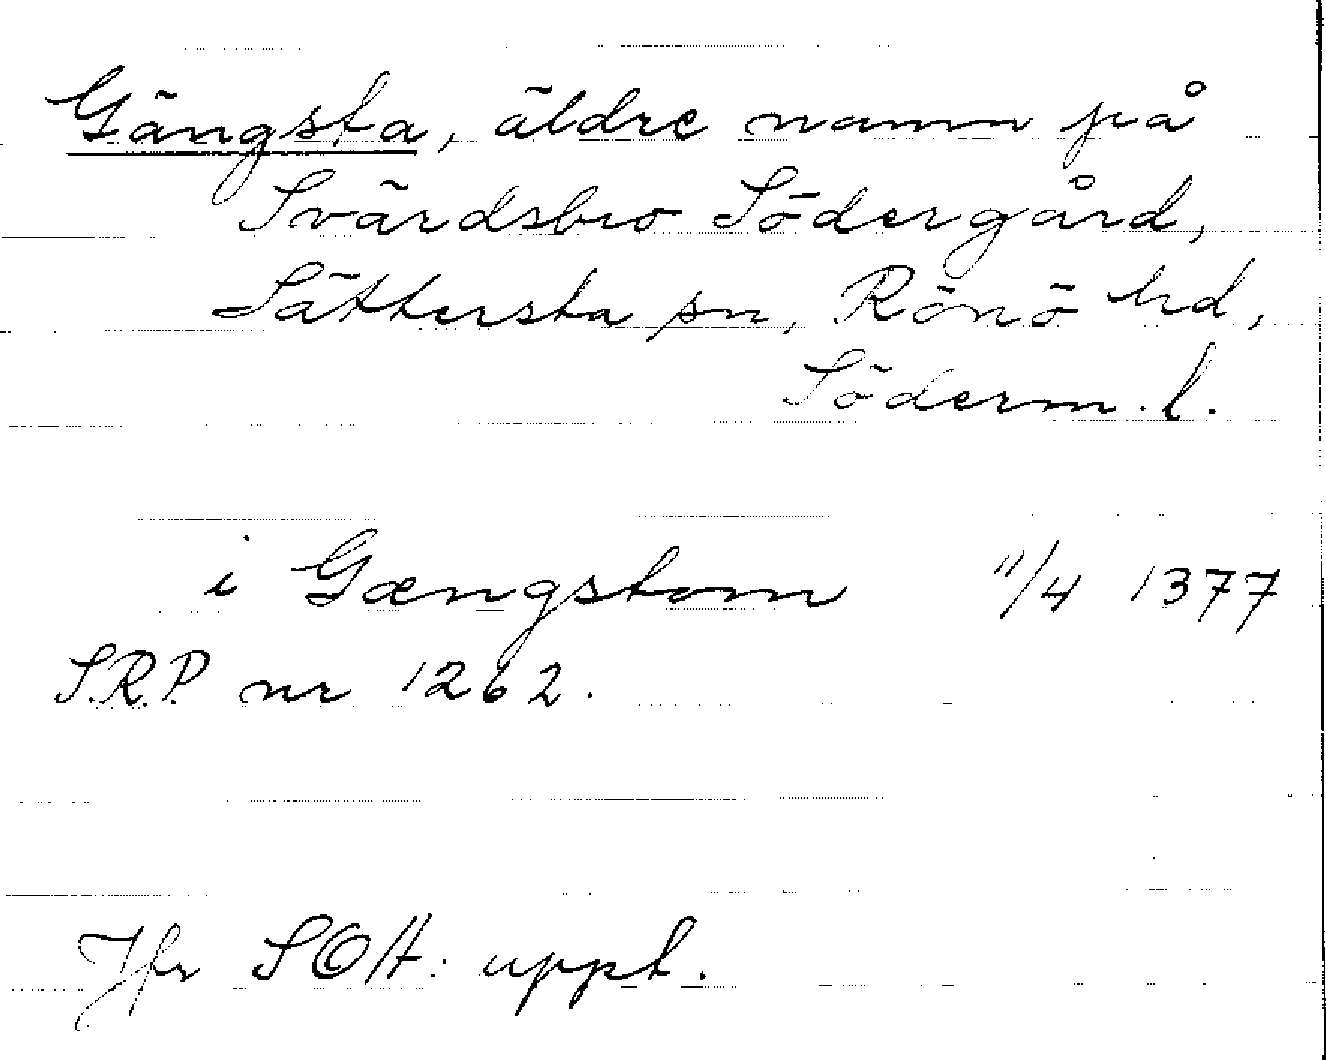 Gängsta, äldre namn på
Svärdsbro Södergård,
Sättersta sn, Rönö hd,
Söderm. l.
i Gængstom 11/4 1377
S.R.P. nr 1262.
Jfr SOH: uppt.